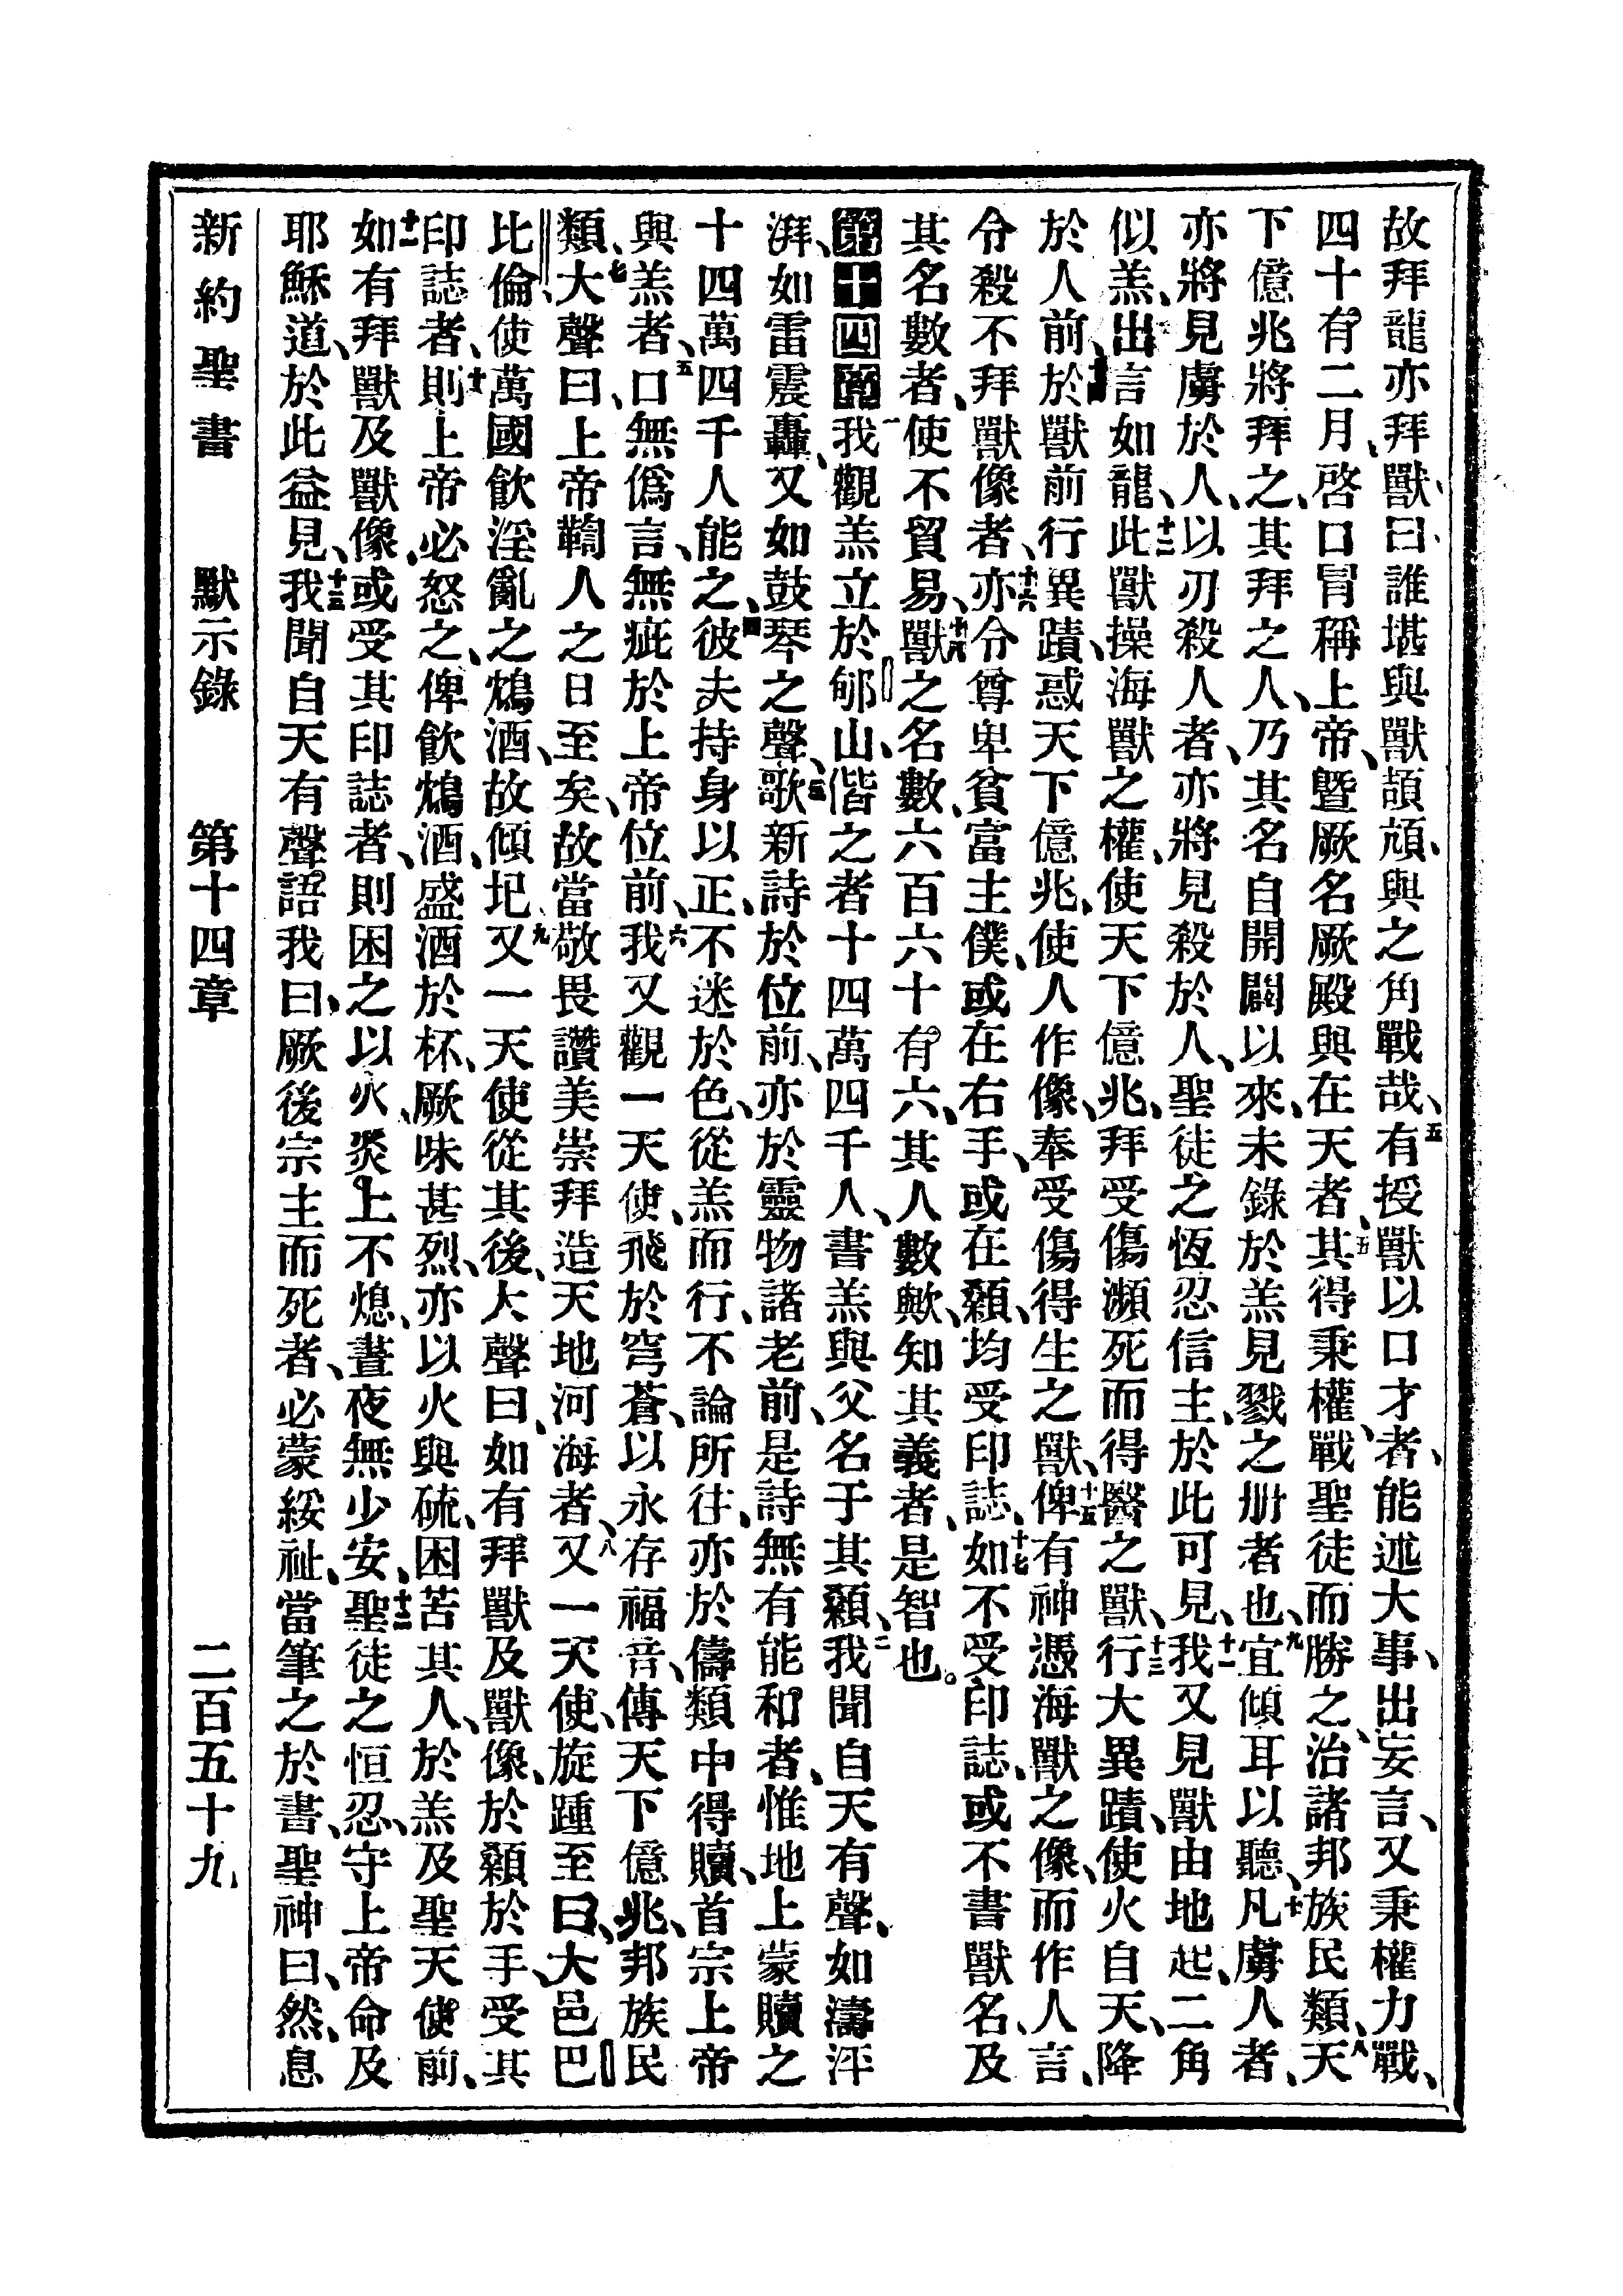 故拜龍亦拜獸、曰、誰堪與獸頡頏、與之角戰哉、五有授獸以口才者、能述大事、出妄言、又秉權力戰、
四十有二月、啓口冒稱上帝、曁厥名厥殿與在天者、其得秉權、戰聖徒而勝之、治諸邦族民類、八天
下億兆將拜之、其拜之人、乃其名自開闢以來、未錄於羔見戮之册者也、九宜傾耳以聽、十凡虜人者、
亦將見虜於人、以刃殺人者、亦將見殺於人、聖徒之恆忍信主、於此可見、十一我又見獸由地起、二角
似羔、出言如龍、十二此獸操海獸之權、使天下億兆、拜受傷瀕死而得醫之獸、十三行大異蹟、使火自天、降
於人前、十四於獸前行異蹟、惑天下億兆、使人作像、奉受傷得生之獸、十五俾有神憑海獸之像、而作人言、
令殺不拜獸像者、十六亦令尊卑貧富主僕、或在右手、或在顙、均受印誌、十七如不受印誌、或不書獸名、及
其名數者、使不貿易、十八獸之名數、六百六十有六、其人數歟、知其義者、是智也。
第十四章一我觀羔立於郇山、偕之者十四萬四千人、書羔與父名于其顙、二我聞自天有聲、如濤泙
湃、如雷震轟、又如鼓琴之聲、三歌新詩於位前、亦於靈物諸老前、是詩無有能和者、惟地上蒙贖之
十四萬四千人能之、四彼夫持身以正、不迷於色、從羔而行、不論所往、亦於儔類中得贖、首宗上帝
與羔者、五口無僞言、無疵於上帝位前、六我又觀一天使、飛於穹蒼、以永存福音、傳天下億兆、邦族民
類、七大聲曰、上帝鞫人之日至矣、故當敬畏讚美崇拜造天地河海者、八又一天使、旋踵至曰、大邑巴
比倫、使萬國飮淫亂之鴆酒、故傾圮、九又一天使從其後、大聲曰、如有拜獸及獸像、於顙於手、受其
印誌者、十則上帝必怒之、俾飮鴆酒、盛酒於杯、厥味甚烈、亦以火與硫、困苦其人、於羔及聖天使前、
十一如有拜獸及獸像、或受其印誌者、則困之以火、炎上不熄、晝夜無少安、十二聖徒之恒忍、守上帝命及
耶穌道、於此益見、十三我聞自天有聲語我曰、厥後宗主而死者、必蒙綏祉、當筆之於書、聖神曰、然、息
新約聖書　默示錄　第十四章　二百五十九